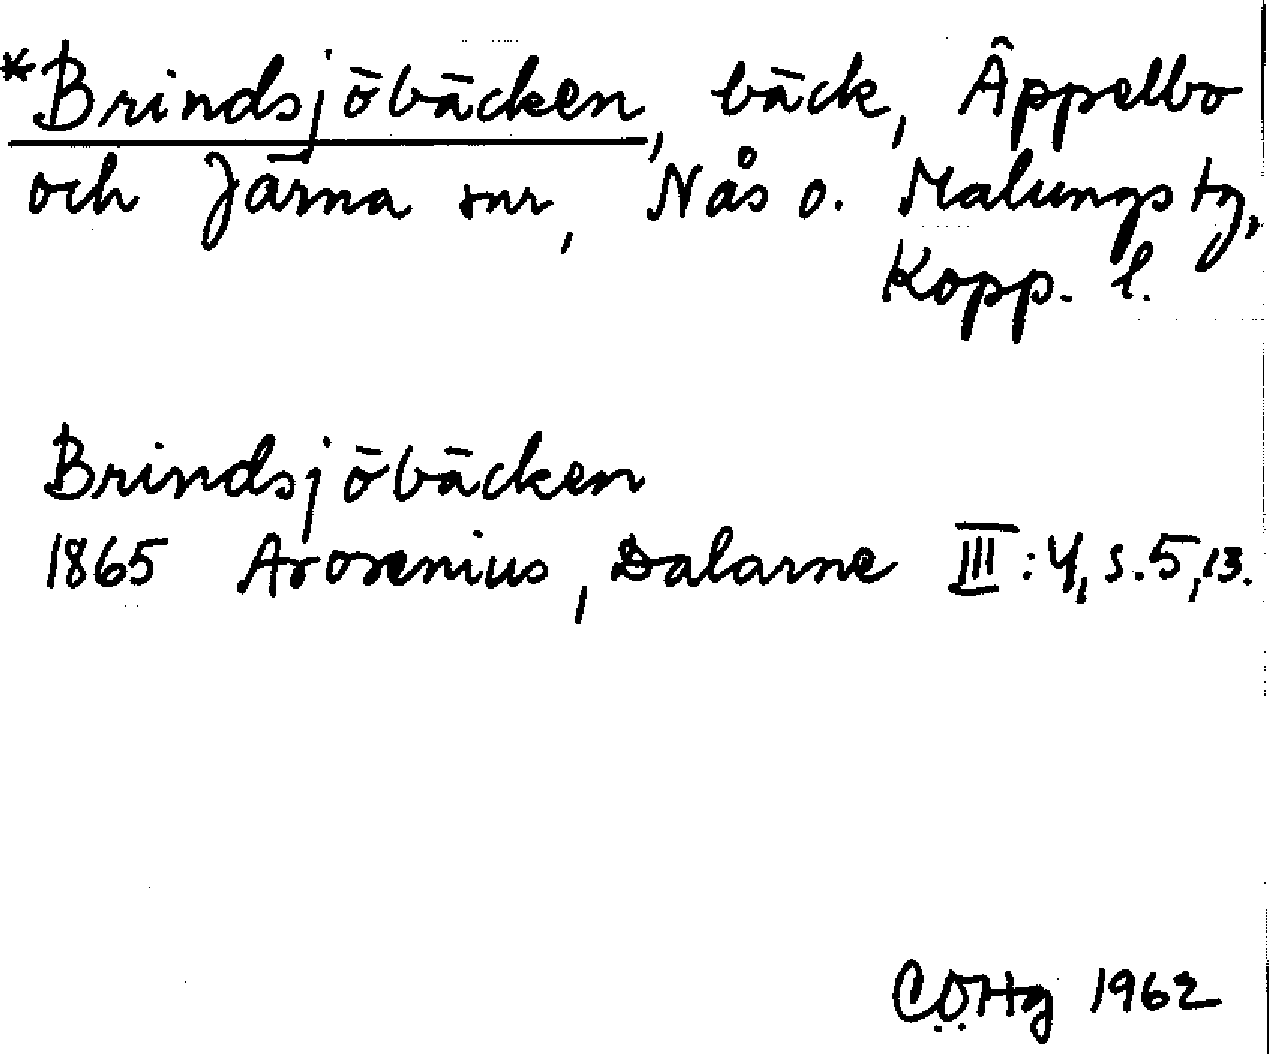 *Brindsjöbäcken, bäck, Äppelbo
och Järna snr, Nås o. Malungs tg,
Kopp. l.
Brindsjöbäcken
1865 Arosenius, Dalarne III:4, s. 5, 13.
CÖHg 1962